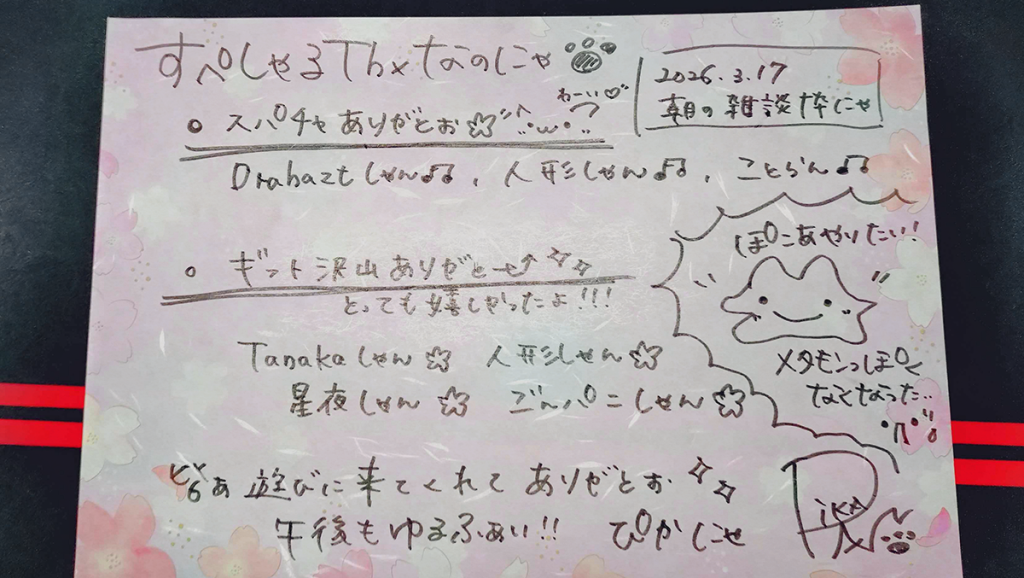 すぺしゃるThxなのにゃ
2026.3.17
朝の雑談枠にゃ
わーい♡
○ スパチャありがとお☆
Drabaztしゃん♫, 人形しゃん♫, ことらん♫
ぽこあやりたい!
○ ギフト沢山ありがとーせ↑
とっても嬉しかったよ!!!
Tanakaしゃん☆ 人形しゃん☆
星夜しゃん☆ ごんパニしゃん☆
メタモンっぽく
なくなった..
遊びに来てくれてありがとお
午後もゆるふぁい!! ぴかにゃ
PiKA